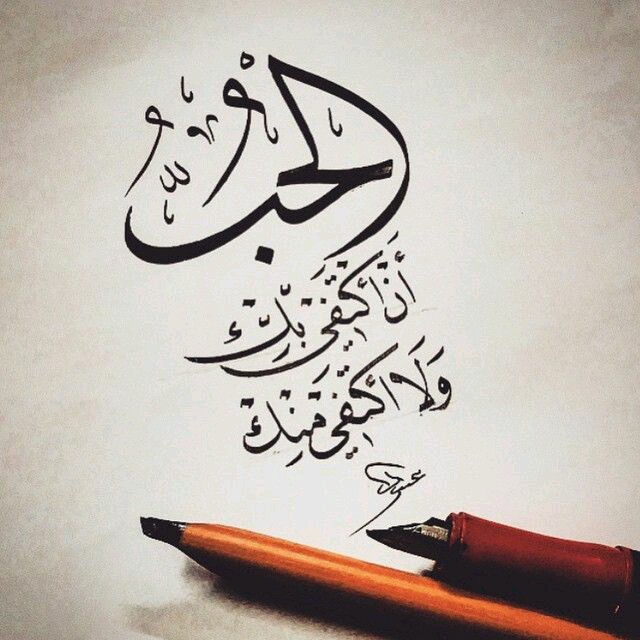 الحُبُّ
أَنَ أكتَفِي بِكَ
وَلَا اكتِفي مِنكَ